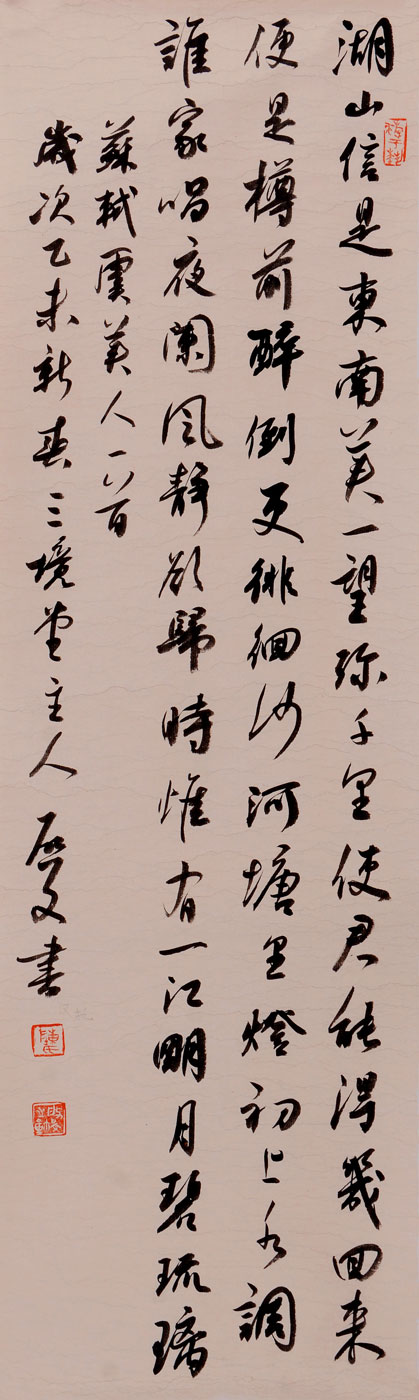 湖山信是東南美一望弥千里使君能得幾回来
便是樽前醉倒更徘徊沙河塘里燈初上水調
誰家唱夜闌風靜欲歸時惟有一江明月碧琉璃
蘇軾虞美人一首
歲次乙未新春三境堂主人
啟文書